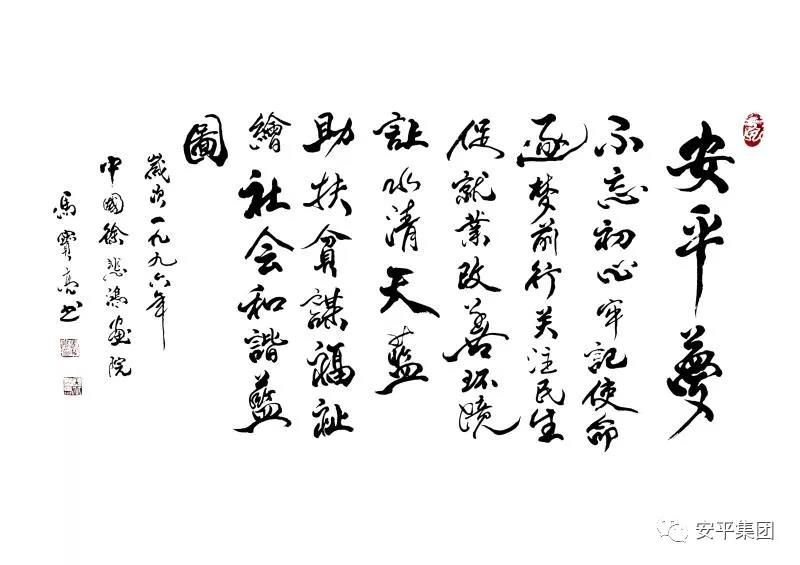 安平夢
不忘初心牢記使命
逐梦前行关注民生
促就業改善环境
让水清天藍
助扶貧謀福祉
繪社会和諧藍
圖
歲次一九九六年
中國徐悲鴻画院
馬寶亮书
安平集团